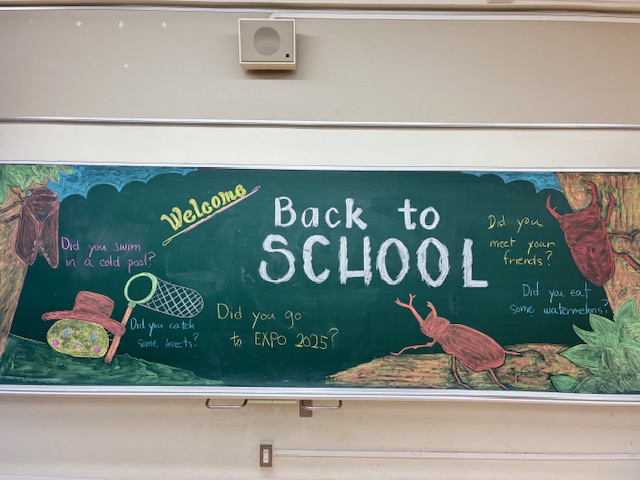 Welcome
Back to
SCHOOL
Did you swim
in a cold pool?
Did you catch
some insects?
Did you go
to EXPO 2025?
Did you
meet your
friends?
Did you eat
some watermelons?